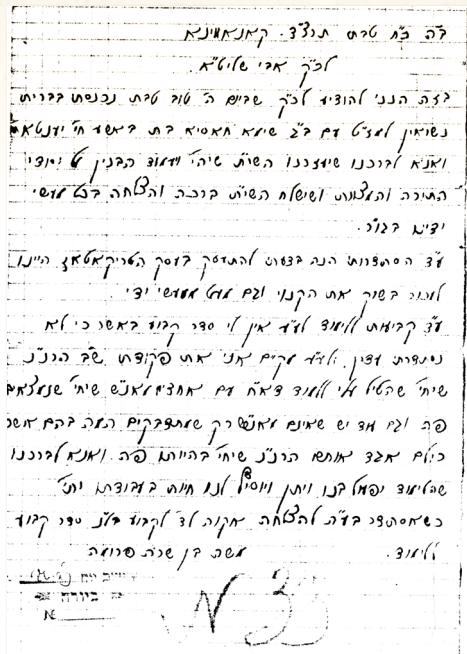 ב״ה כ״ח טבת תרצ״ד.
לכ״ק אבי שליט״א.
בזה הנני להודיע לכ״ק שביום ה׳ טוב טבת נכנסתי בברית
נשואין למז״ט עם ב״ג שימא חאסיא בת באשע חי׳
ואנא לברכנו שיעזרנו השי״ת שיהי׳ ויעמוד הבנין על יסודי
התורה והמצוות ושישלח השי״ת ברכה והצלחה בכל מעשי
ידינו בגו״ר.
ע״ד הסתדרותי הנה בדעתי להתעסק בעסק הטריקאטאז היינו
למכור בשוק את הקנוי וגם מעט מעשי ידי.
ע״ד קביעות ללימוד לע״ע אין לי סדר קבוע באשר כי לא
נסתדרתי עדין. ולע״ע מקיים אני את פקודתו ש״ב הרנ״נ
שיחי׳ שהטיל עלי ללמוד דא״ח עם אחדים מאנ״ש שיחי׳ שנמצאים
פה וגם עוד יש שאינם מאנ״ש רק שמתדבקים המה בהם אשר
כולם אגד אותם הרנ״נ שיחי׳ בהיותו פה ואנא לברכנו
שהלימוד יפעל בנו ויתן ויוסיף לנו חיות בעבודתו ית׳
כשאסתדר בע״ה להצלחה אקוה לד׳ לקבוע בל״נ סדר קבוע
ללימוד. משה בן שרה פרומה
ביורה
N
N 33